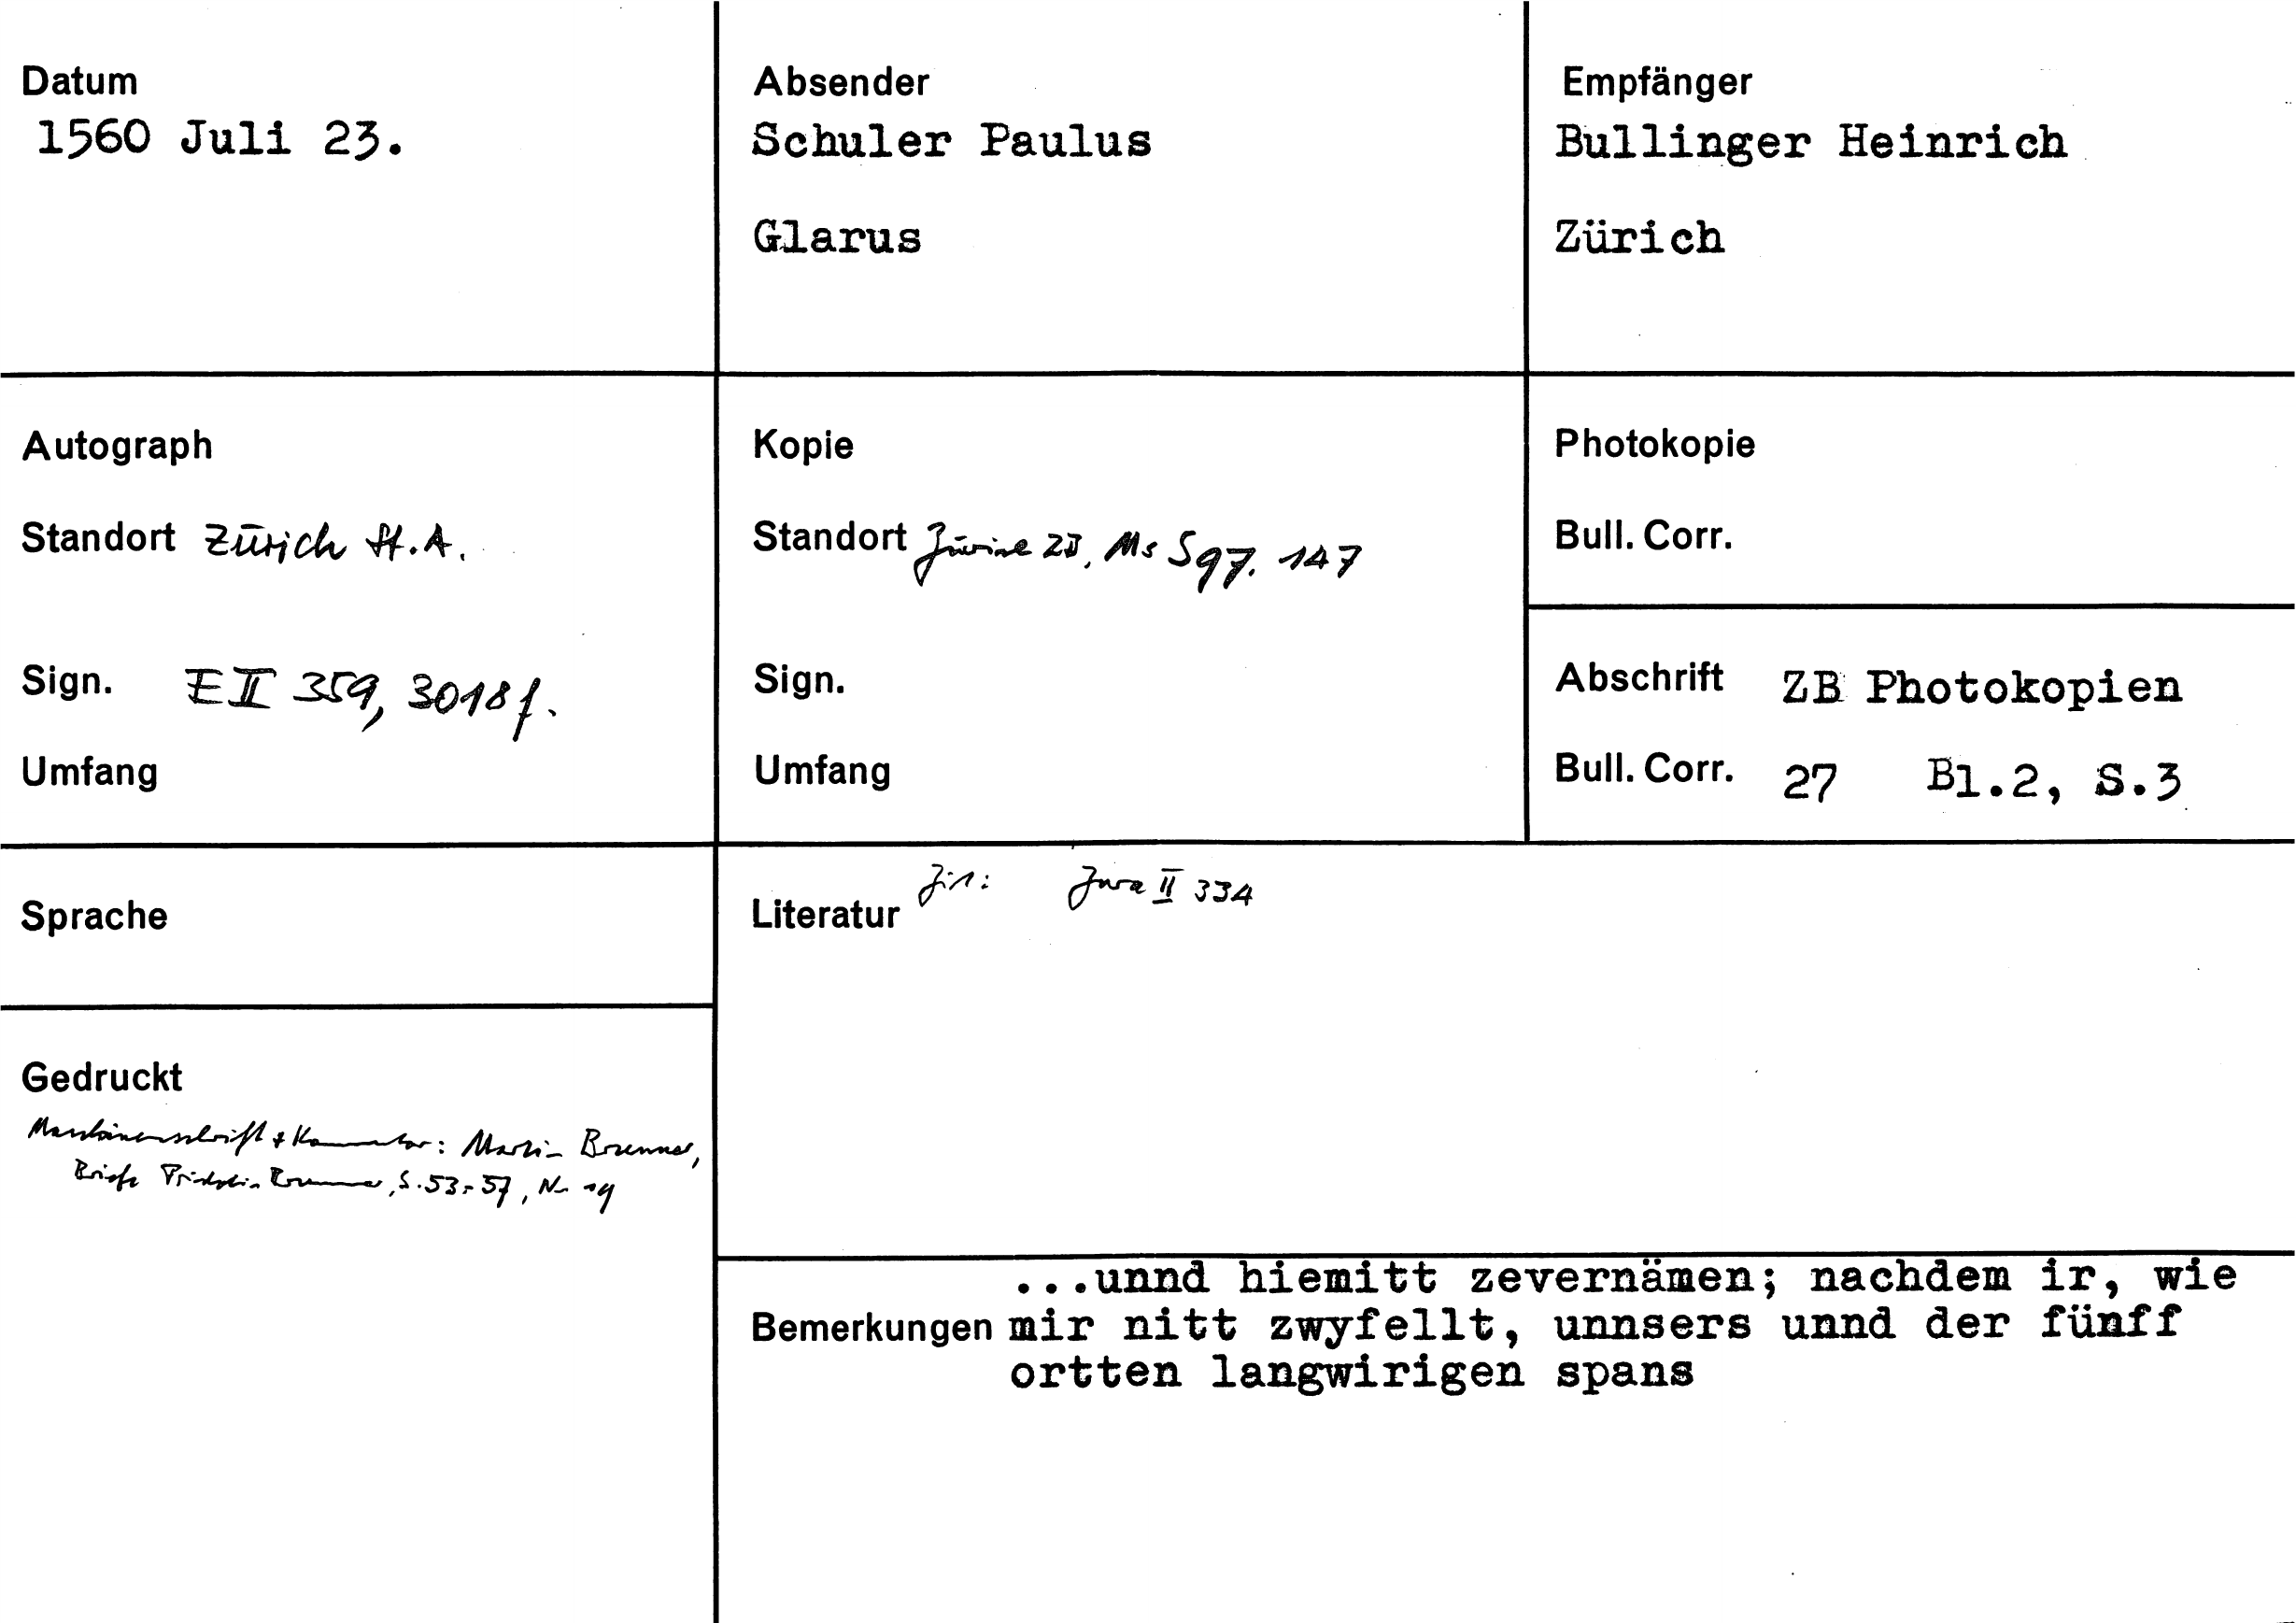 Datum
1560 Juli 23.
Absender
Schuler Paulus
Glarus
Empfänger
Bullinger Heinrich
Zürich
Autograph
Standort Zürich St.A.
Sign. E II 359, 3018f.
Umfang
Kopie
Standort Zürich ZB, Ms S 97. 147
Sign.
Umfang
Photokopie
Bull. Corr.
Abschrift ZB Photokopien
Bull. Corr. 27 Bl.2, S.3
Sprache
Literatur Zit: II 334
Gedruckt
Maschinenschrift + Kommentar: Martin Brunner,
Briefe Fridolin Brunner, S. 53-57, Nr 19
...unnd hiemitt zevernämen; nachdem ir, wie
Bemerkungen mir nitt zwyfellt, unnsers unnd der fünff
ortten langwirigen spans